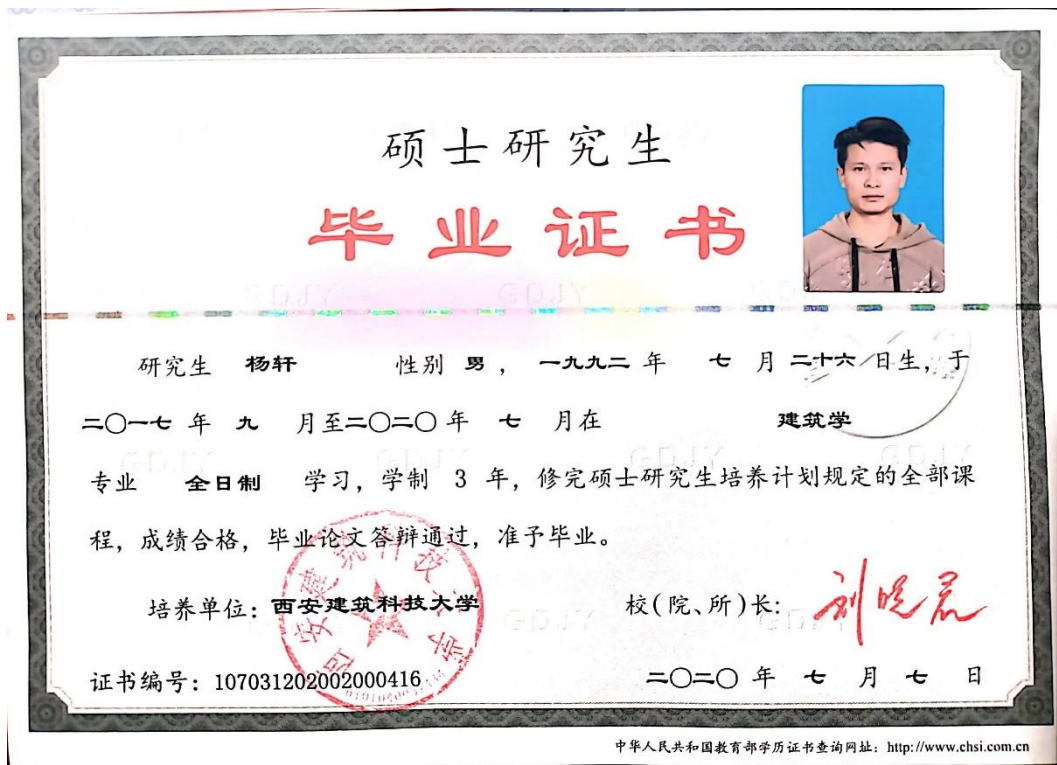 硕士研究生
毕业证书
研究生 杨轩 性别 男 ， 一九九二 年 七 月 二十六 日生，于
二〇一七 年 九 月至二〇二〇 年 七 月在 建筑学
专业 全日制 学习，学制 3 年，修完硕士研究生培养计划规定的全部课
程，成绩合格，毕业论文答辩通过，准予毕业。
培养单位：西安建筑科技大学
西安建筑科技大学
校(院、所)长：刘晓君
证书编号：107031202002000416
二〇二〇 年 七 月 七 日
中华人民共和国教育部学历证书查询网址：http://www.chsi.com.cn